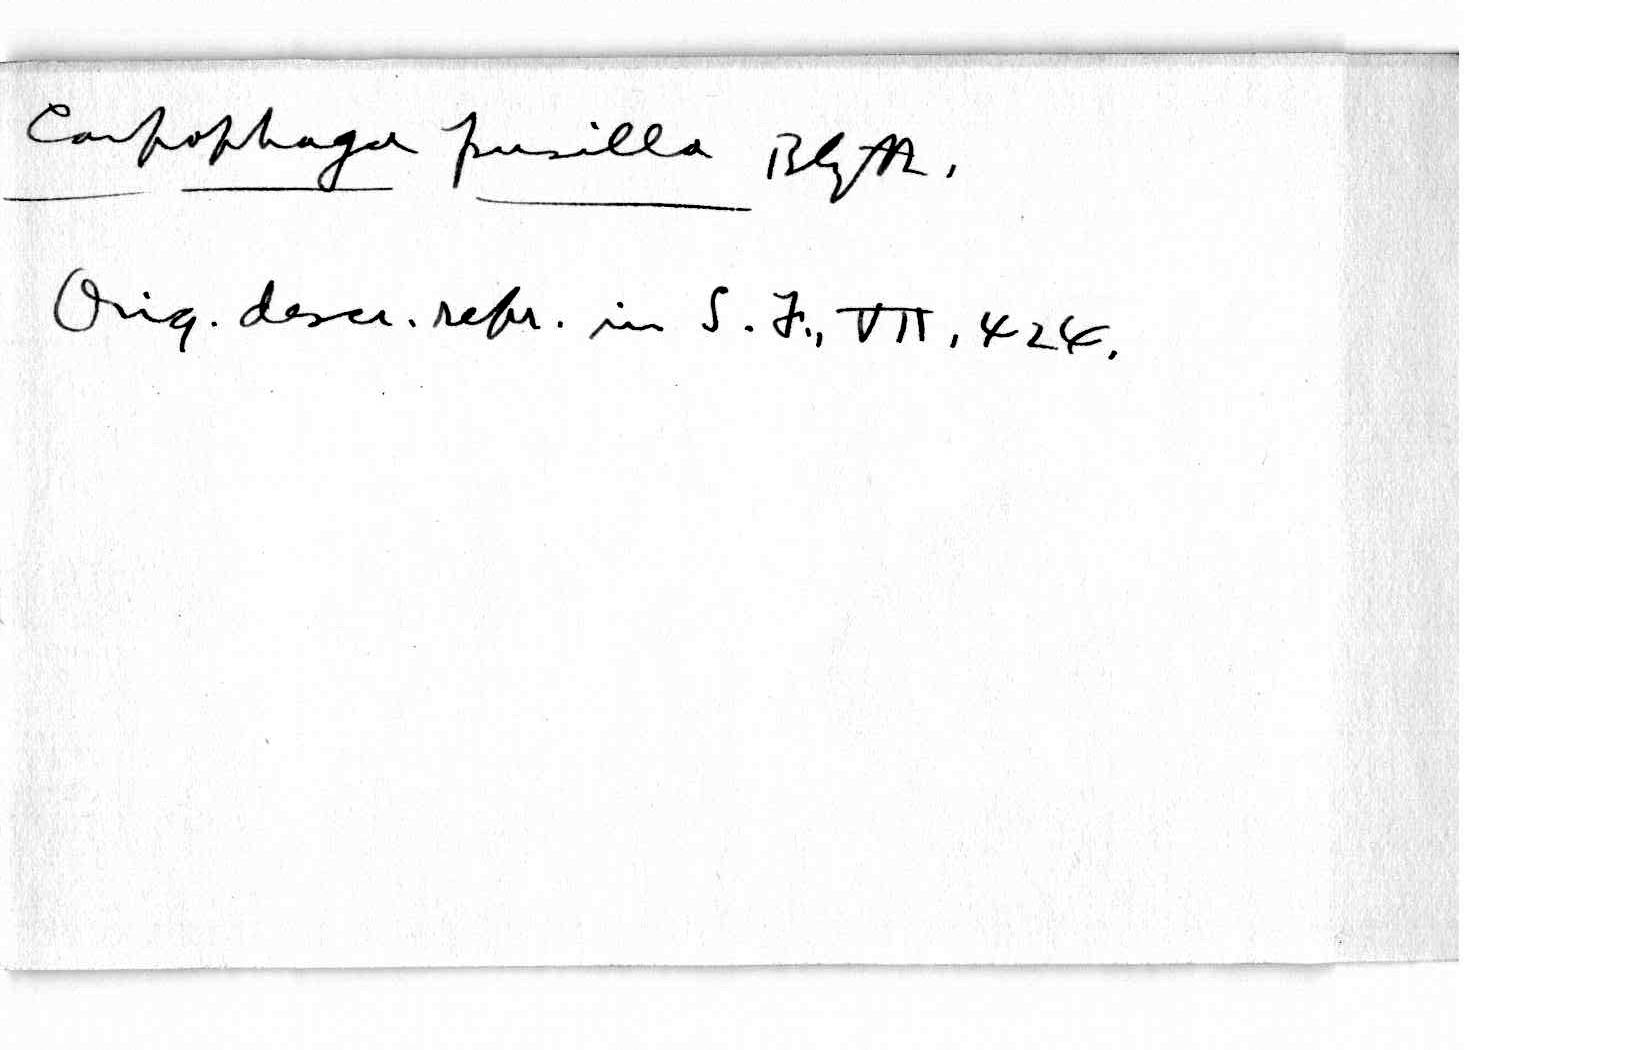 Carpophaga pusilla Blyth.
Orig. descr. repr. in S. F., VII, 424.